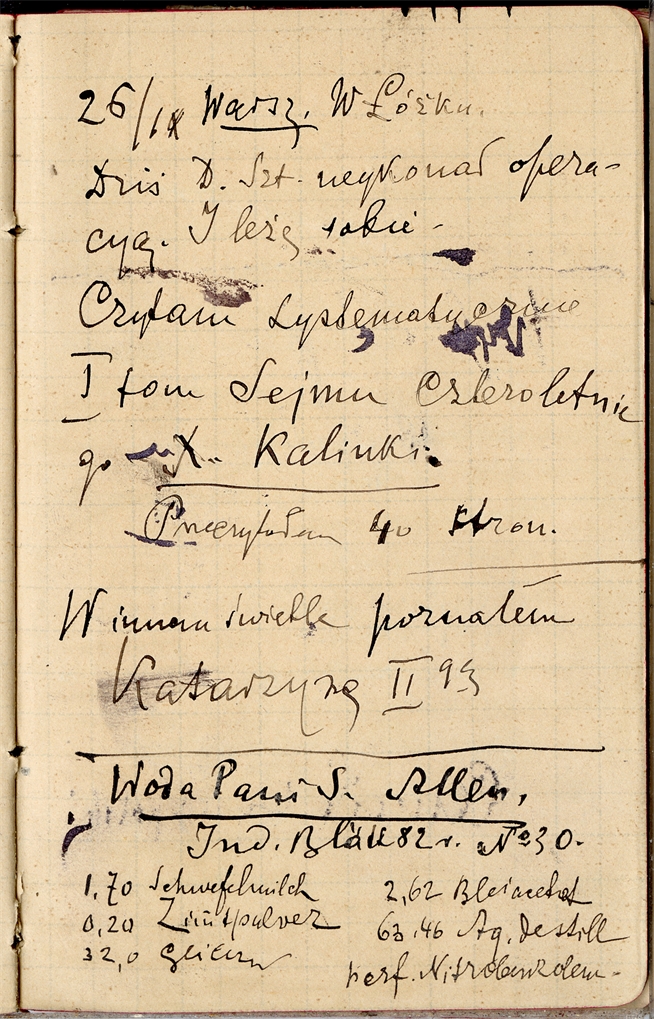 26/IX Warsz. W Łóżku.
Dziś D. Szt. wykonał opera-
cyą. I leżę sobie -
Czytam systematycznie
I tom Sejmu Czteroletnie
go X. Kalinki.
Przeczytałem 40 stron.
W innem świetle poznałem
Katarzynę II
Woda Pani S. Allen.
Ind. Blätt 82 r. No 30.
1,70 Schwefelmilch 2,62 Bleiacetat
0,20 Zimtpulver 63,46 Aq. destill
32,0 Glicerin perf. Nitrobenzolem -